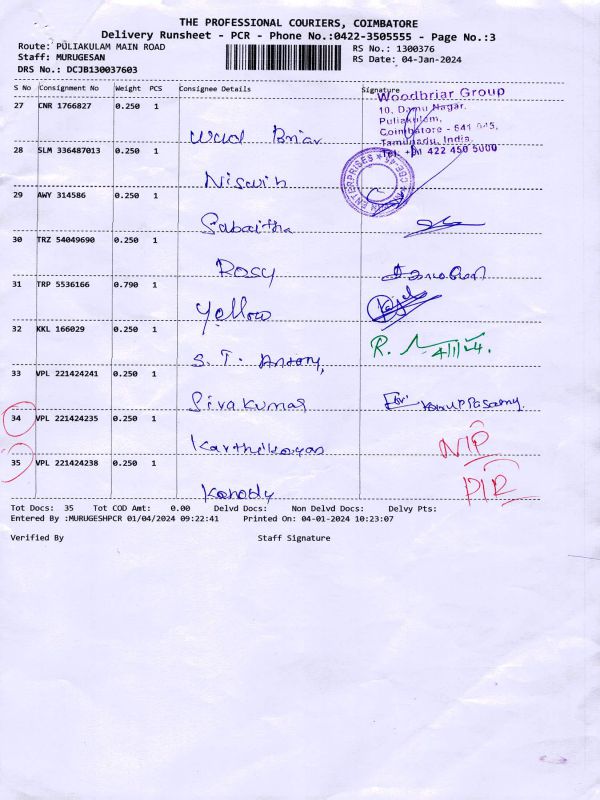 THE PROFESSIONAL COURIERS, COIMBATORE
Delivery Runsheet - PCR - Phone No.:0422-3505555 - Page No.:3
Route: PULIAKULAM MAIN ROAD
RS No.: 1300376
Staff: MURUGESAN
RS Date: 04-Jan-2024
DRS No.: DCJB130037603
S No Consignment No Weight PCS Consignee Details Signature
27 CNR 1766827 0.250 1
Woodbriar Group
10, Damu Nagar,
Puliakulam,
Coimbatore - 641 045,
Tamilnadu, India.
Tel: +91 422 450 5000
Wud Briar
28 SLM 336487013 0.250 1
ENTERPRISES
CBE-45
29 AWY 314586 0.250 1
Sabaitha
30 TRZ 54049690 0.250 1
Rosy
31 TRP 5536166 0.790 1
Yellow
32 KKL 166029 0.250 1
S. T. Antony,
R. 4/1/24.
33 VPL 221424241 0.250 1
Sivakumar
34 VPL 221424235 0.250 1
35 VPL 221424238 0.250 1
Tot Docs: 35 Tot COD Amt: 0.00 Delvd Docs: Non Delvd Docs: Delvy Pts:
Entered By :MURUGESHPCR 01/04/2024 09:22:41 Printed On: 04-01-2024 10:23:07
Verified By Staff Signature